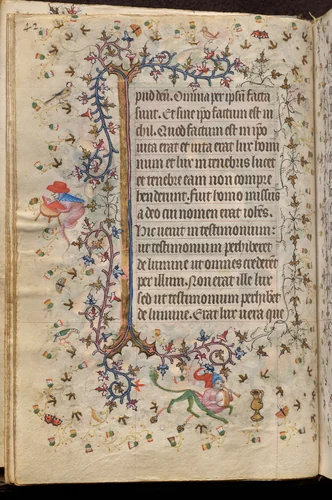 pud deu. Omnia per ipsu facta
sunt. Et sine ipo factum est ni
chil. Quod factum est in ipo
uita erat et uita erat lux homi
num et lux in tenebris lucet
et tenebre eam non compre
henderunt. Fuit homo missus
a deo cui nomen erat iohes.
Hic uenit in testimonium:
ut testimonium perhiberet
de lumine ut omnes crederet
per illum. Non erat ille lux
sed ut testimonium perhibet
de lumine. Erat lux uera que